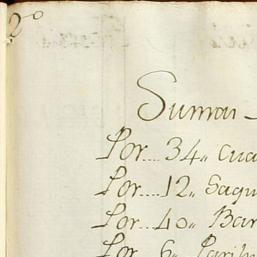 2º
Suman
Por.... 34,, Cua
Por.... 12,, Saqu
Por.... 40,, Bar
Por.... 6,, Parih